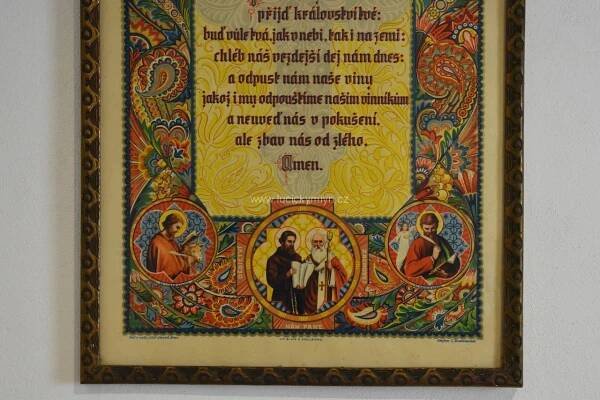 přijď království tvé:
buď vůle tvá, jak v nebi, tak i na zemi:
chléb náš vezdejší dej nám dnes:
a odpusť nám naše viny
jakož i my odpouštíme našim vinníkům
a neuveď nás v pokušení,
ale zbav nás od zlého.
Amen.
www.lucickymlyn.cz
NÁM PANE